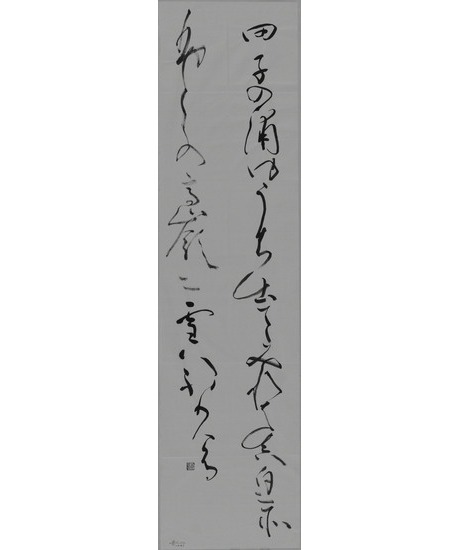 田子の浦ゆうち出てみれは真白にそ
ふしの高嶺ニ雪ハふりける